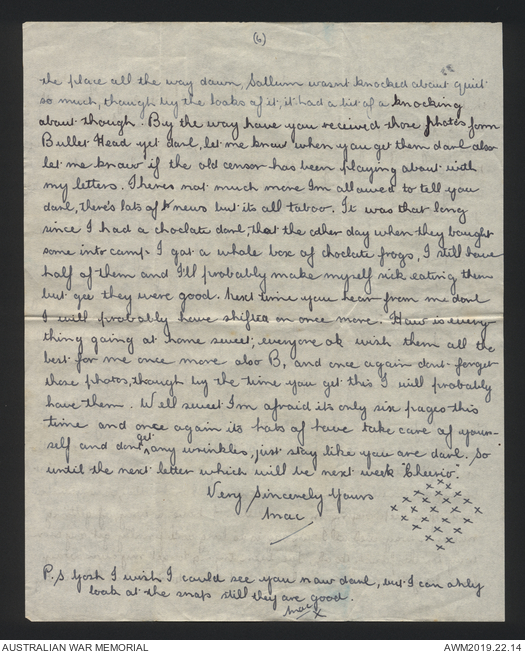 (6)
the place all the way down, Sollum wasnt knocked about quiet
so much, though by the looks of it, it had a bit of a knocking
about though. By the way have you received those photos form
Bullet Head yet darl, let me know when you get them darl also
let me know if the old censor has been playing about with
my letters. Theres not much more Im allowed to tell you
darl, there's lots of news but its all taboo. It was that long
since I had a choclate darl, that the other day when they bought
some into camp. I got a whole box of choclate frogs, I still have
half of them and I'll probably make myself sick eating them
but gee they were good. Next time you hear from me darl
I will probably have shifted on once more. How is every-
thing going at home sweet, everyone ok wish them all the
best for me once more also B, and once again dont forget
those photos, though by the time you get this I will probably
have them. Well sweet Im afraid its only six pages this
time and once again its lots of love take care of your-
self and dont get any wrinkles, just stay like you are darl. So
until the next letter which will be next week "Cheerio."
Very Sincerely Yours
Mac
P.S. Gosh I wish I could see you now darl, but I can only
look at the snaps still they are good.
Mac x
AUSTRALIAN WAR MEMORIAL
AWM2019.22.14